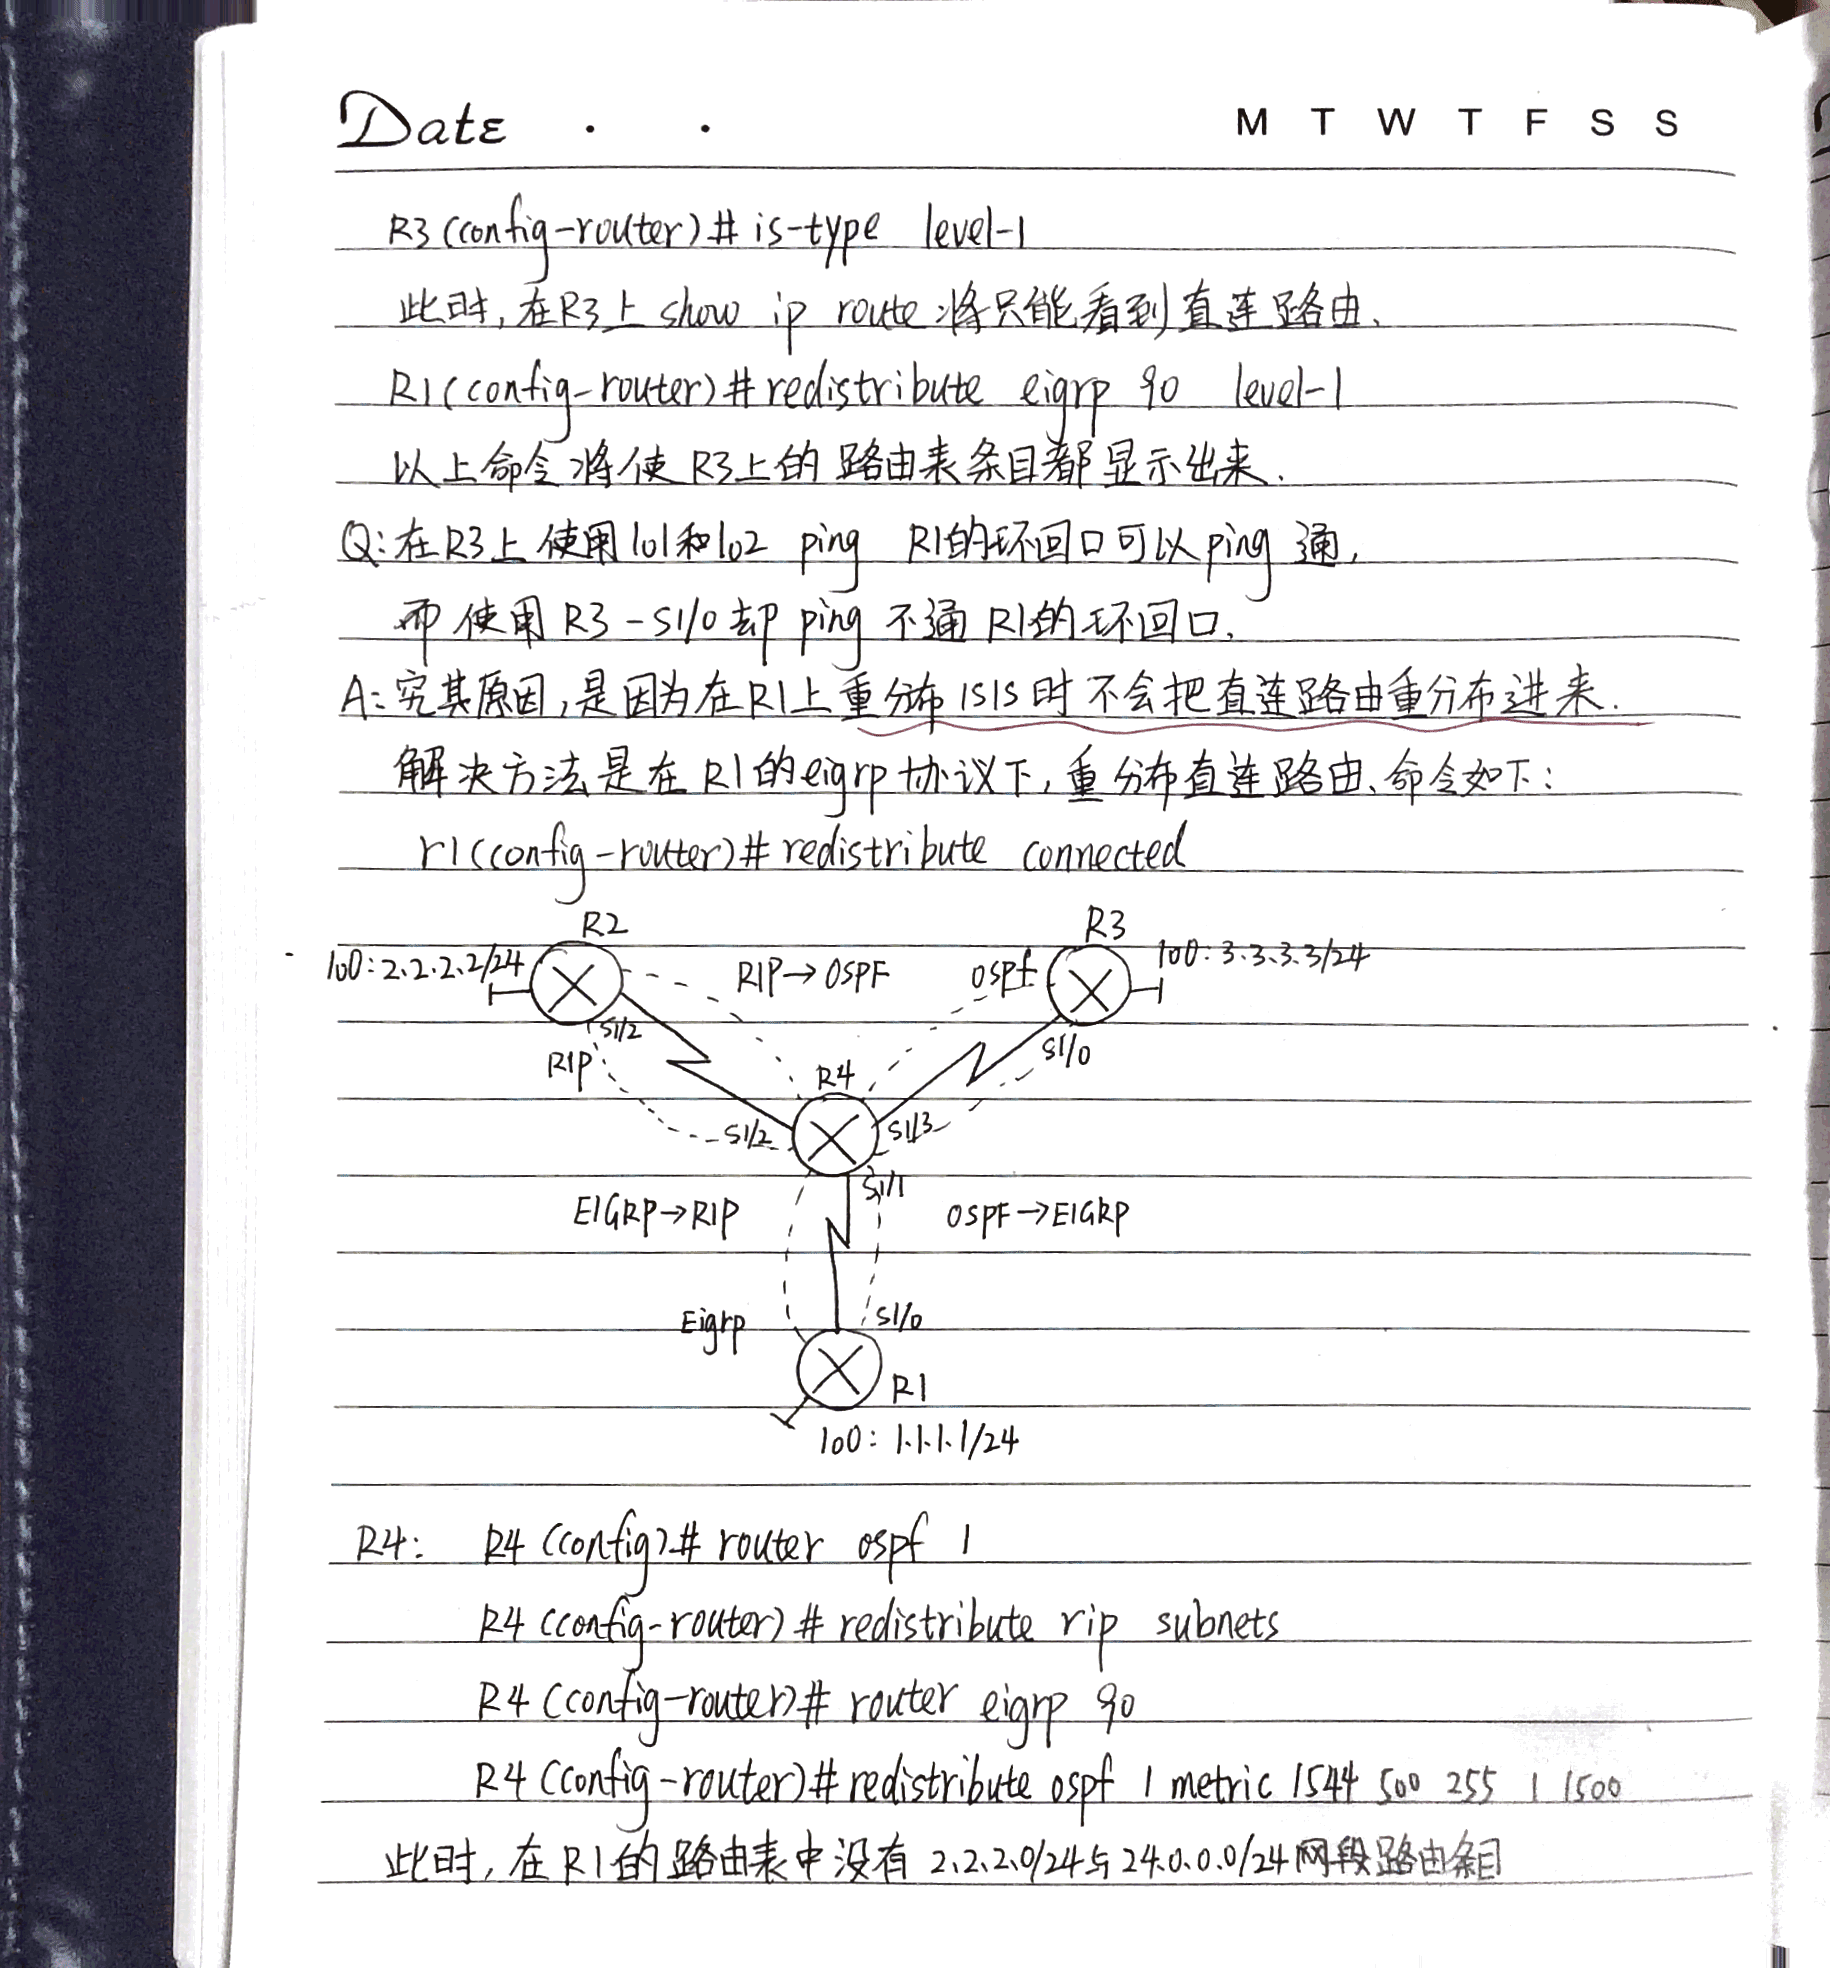 Date . .
M T W T F S S
R3(config-router)# is-type level-1
此时,在R3上 show ip route 将只能看到直连路由、
R1(config-router)# redistribute eigrp 90 level-1
以上命令将使R3上的路由表条目都显示出来.
Q:在R3上使用lo1和lo2 ping R1的环回口可以ping通,
而使用R3-S1/0却ping不通R1的环回口.
A:究其原因,是因为在R1上重分布ISIS时不会把直连路由重分布进来.
解决方法是在R1的eigrp协议下,重分布直连路由、命令如下:
r1(config-router)# redistribute connected
R2
R3
lo0:2.2.2.2/24
RIP→OSPF
ospf
lo0:3.3.3.3/24
S1/2
S1/0
RIP
R4
S1/2
S1/3
S1/1
EIGRP→RIP
OSPF→EIGRP
Eigrp
S1/0
R1
lo0: 1.1.1.1/24
R4: R4(config)# router ospf 1
R4(config-router)# redistribute rip subnets
R4(config-router)# router eigrp 90
R4(config-router)# redistribute ospf 1 metric 1544 500 255 1 1500
此时,在R1的路由表中没有2.2.2.0/24与24.0.0.0/24网段路由条目